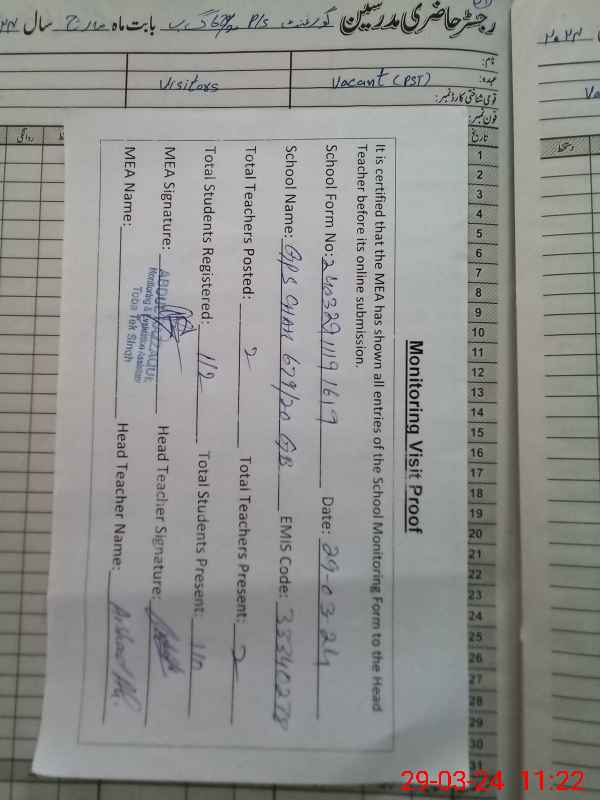 رجسٹر حاضری مدرسین گورنمنٹ P/S 679/20 گ ب بابت ماہ مارچ سال
نام:
عہدہ: Vacant (PST) Visitors
قومی شناختی کارڈ نمبر:
فون نمبر:
تاریخ
روانگی
دستخط
1
2
3
4
5
6
7
8
9
10
11
12
13
14
15
16
17
18
19
20
21
22
23
24
25
26
27
28
29
30
31
Monitoring Visit Proof
It is certified that the MEA has shown all entries of the School Monitoring Form to the Head
Teacher before its online submission.
School Form No: 24032911191619 Date: 29-03-24
School Name: GPS CHAK 679/20 GB EMIS Code: 33340278
Total Teachers Posted: 2 Total Teachers Present: 2
Total Students Registered: 112 Total Students Present: 110
MEA Signature: Head Teacher Signature:
ABDUL RAZZAQUE
Monitoring & Evaluation Assistant
Toba Tek Singh
MEA Name: Head Teacher Name: Arshad Ali
29-03-24 11:22